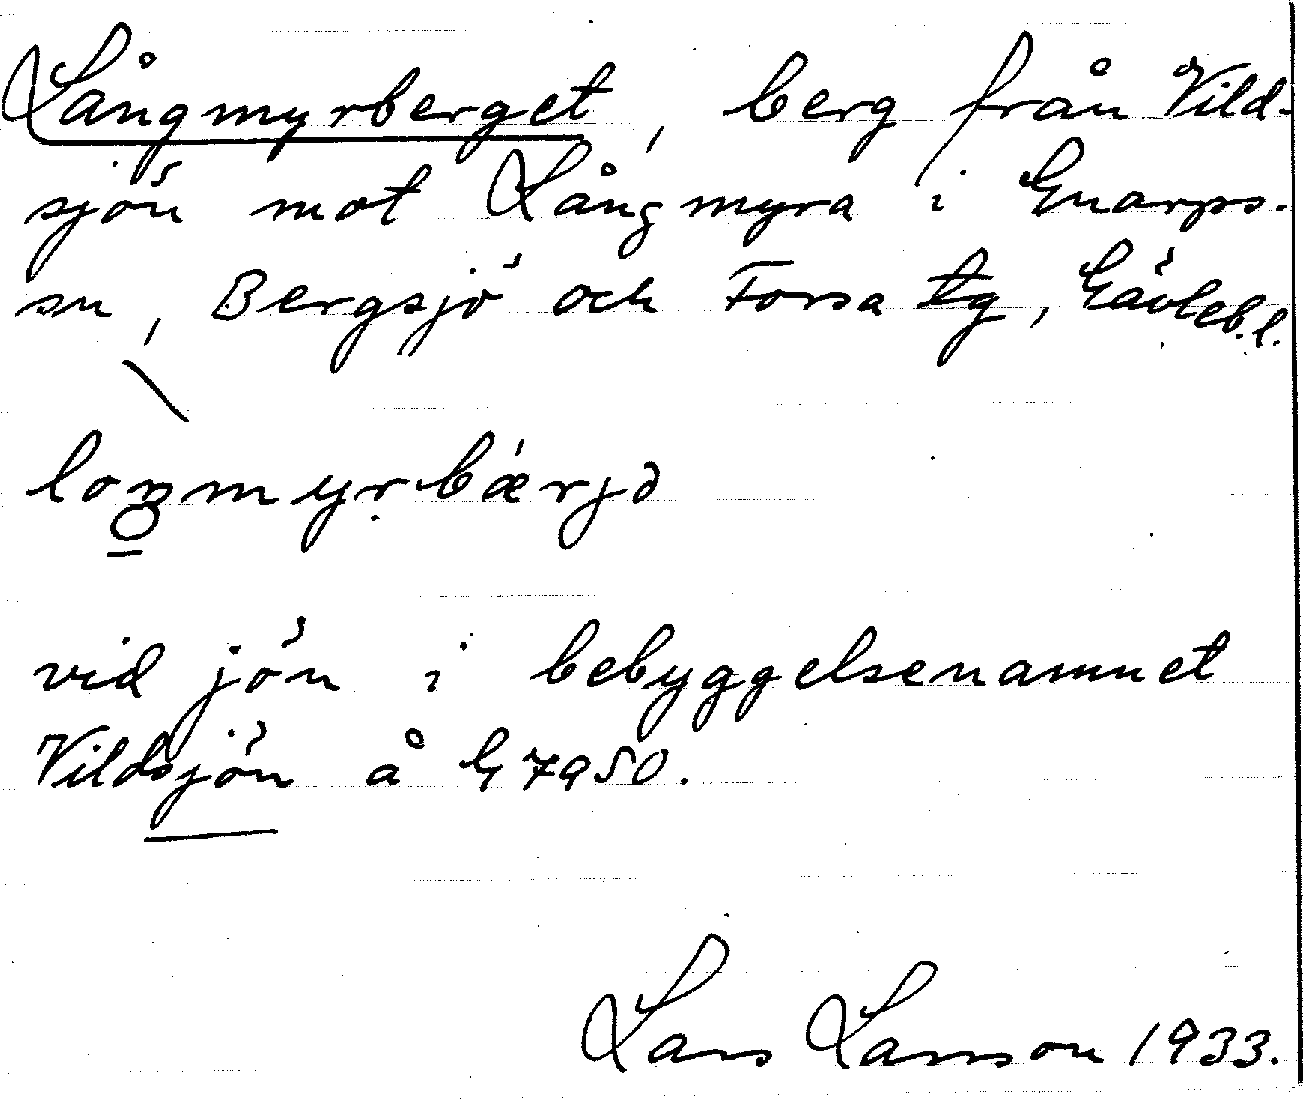 Långmyrberget, berg från Vild-
sjön mot Långmyra i Gnarps-
sn, Bergsjö och Forsa tg, Gävleb.l.
loŋmyrbærjə
vid jön i bebyggelsenamnet
Vildsjön å G 7950.
Lars Larsson 1933.